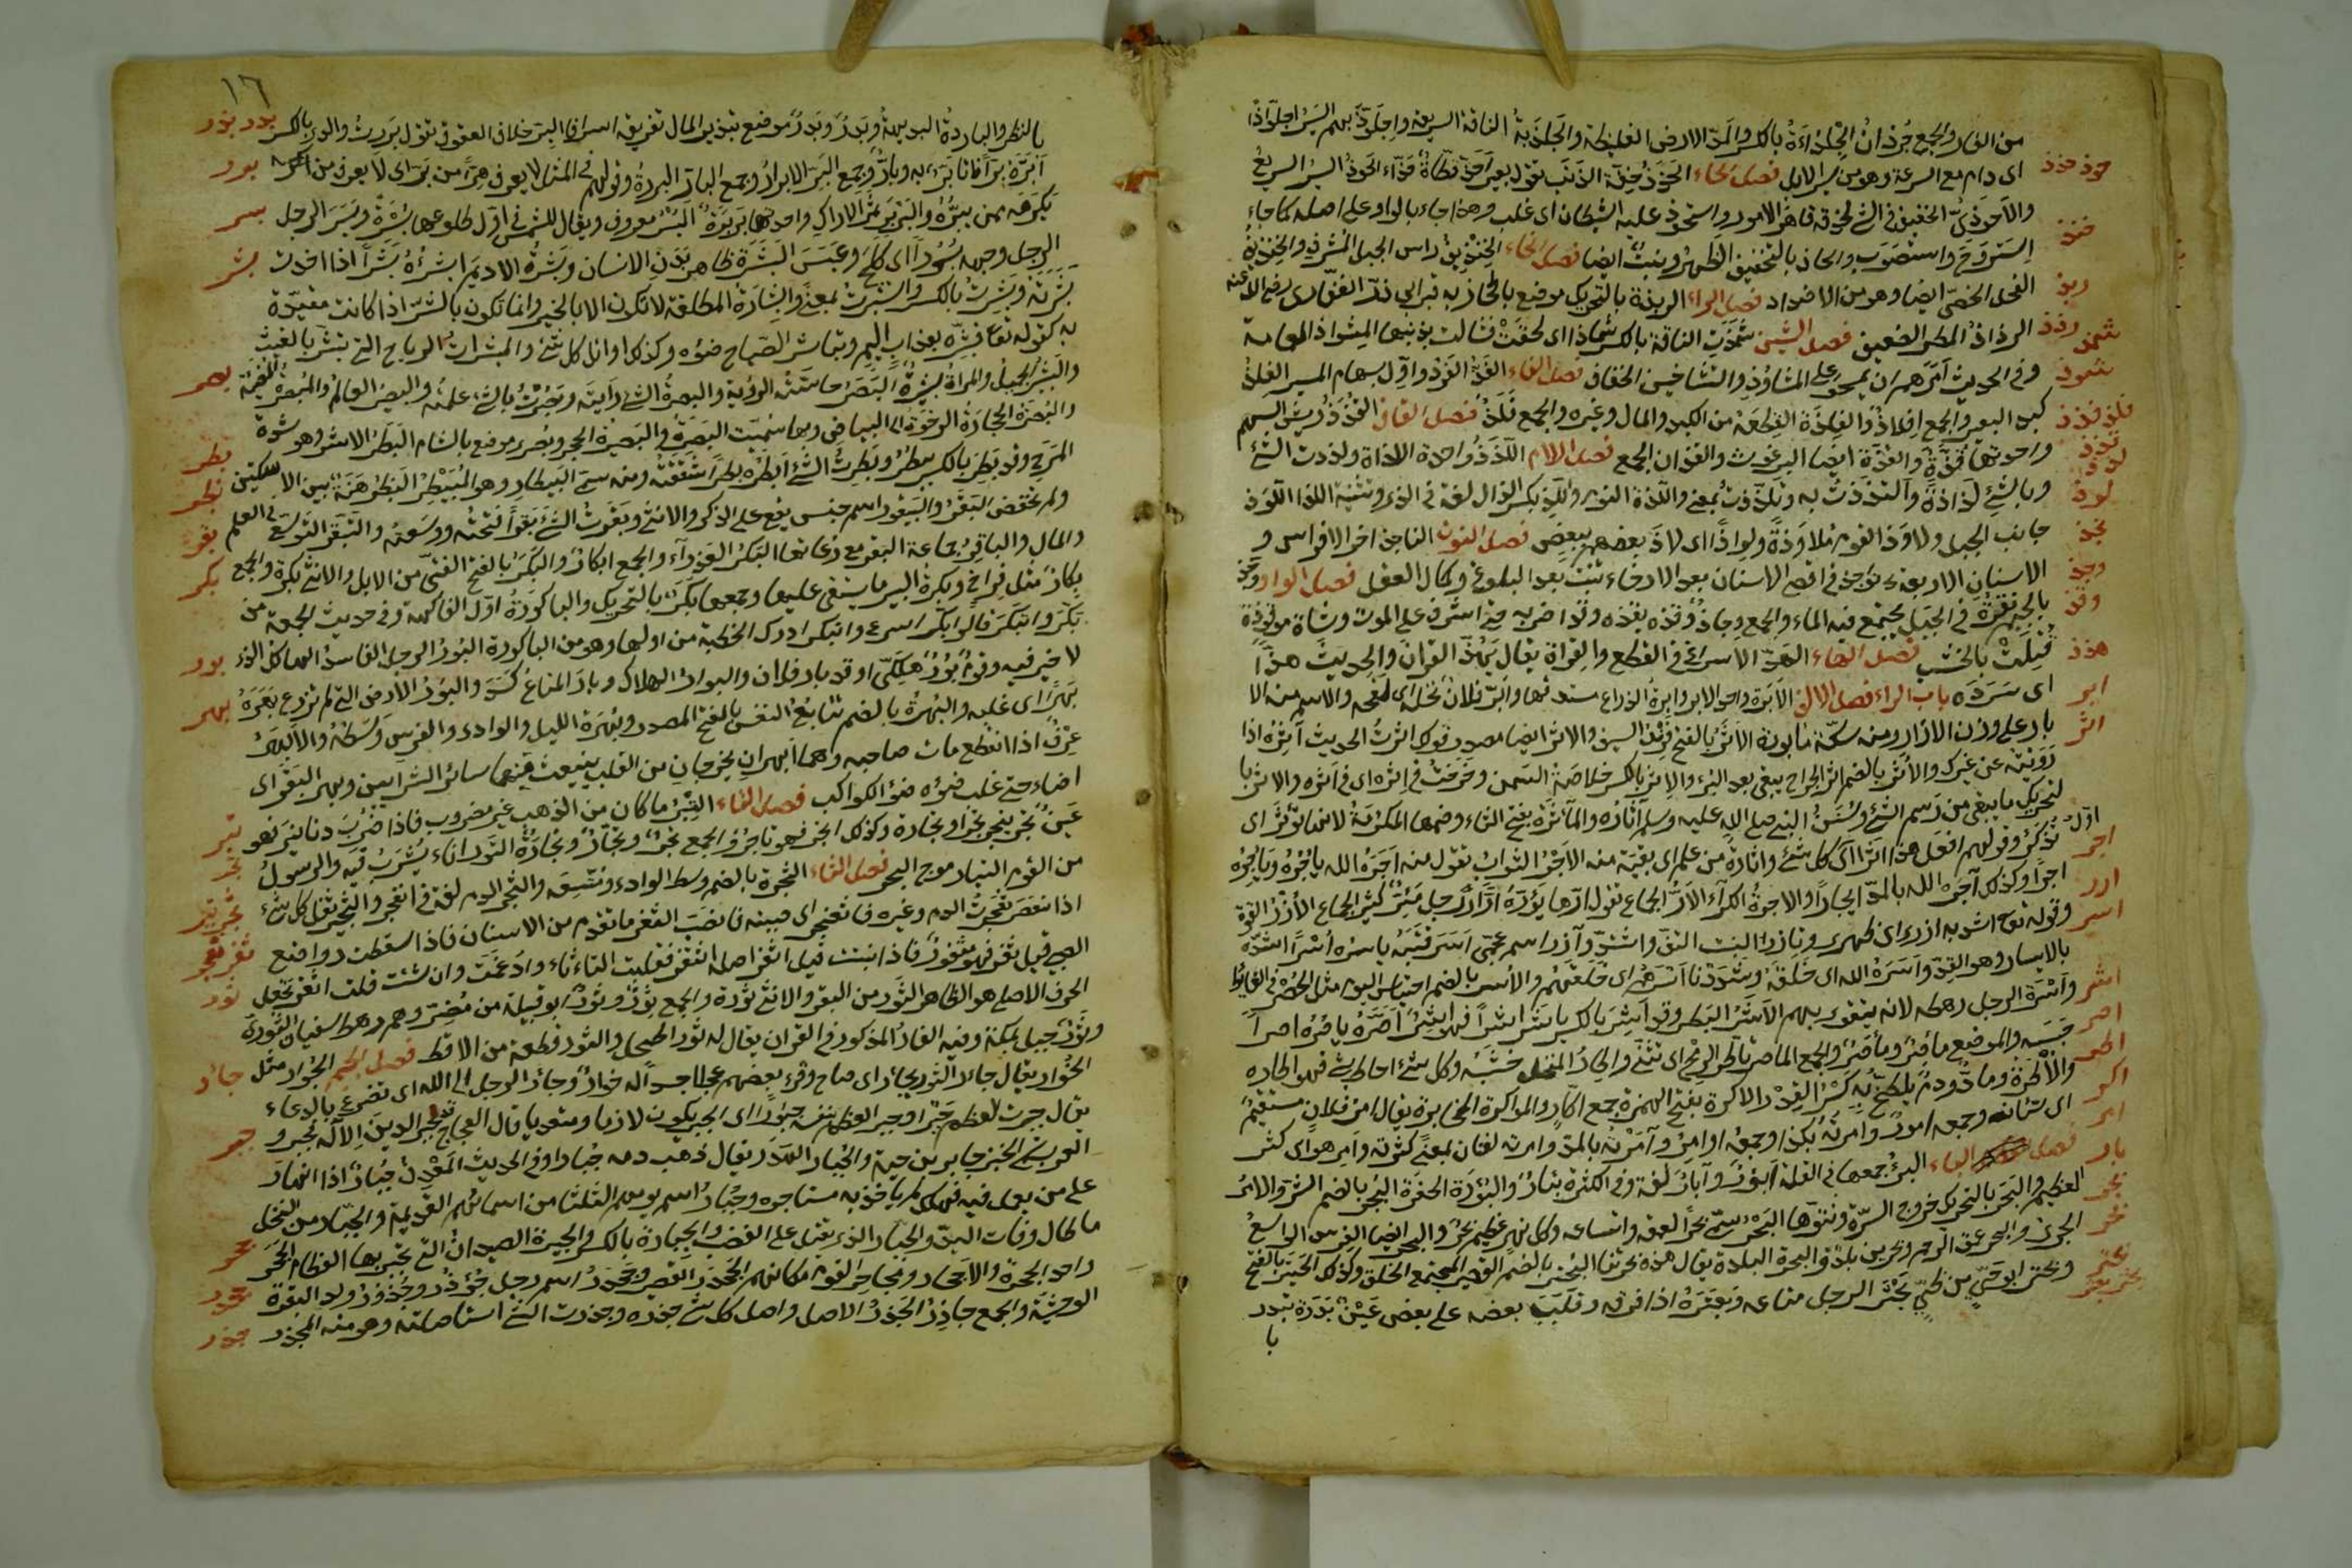 من الفار والجمع جُرذان الجِلذاءَةُ بالكسر والمد الارض الغليظة والجُلذيةُ الناقة السريعة واجلوَّذ بهم السير اجلوّاذًا
حوذ حذذ اى دام مع السرعة وهو من سير الابل فصل الحاء الحَذَذُ خِفّة الذنَب تقول بعير اَحَذّ وقطاةٌ حَذّاء الحَوذُ السير السريعُ
والاَحوَذِىّ الخفيف فى الشئ لحذقه قاهر الامور واستحوذ عليه الشيطان اى غلب وهذا جاء بالواو على اصله كما جاء
خنذ استروَح واستصوَب والحاذ بالتخفيف الظهر ونبت ايضا فصل الخاء الخِنذِيذُ راس الجبل المشرف والخنذيذُ
ربذ الفحل الخصىّ ايضا وهو من الاضداد فصل الراء الربذة بالتحريك موضع بالحجاز به قبر ابى ذرّ الغفارى رضى الله عنه
شمذ رذذ الرذاذُ المطر الضعيف فصل الشين شَمَذَتِ الناقة بالكسر شِماذا اى لحقت فشالت بذنبها المِشواذ العمامة
شوذ وفى الحديث اَمَرهم ان يمسحوا على المشاوِذِ والتساخين الخفاف فصل الفاء الفَذّ الفَرد واوّل سهام الميسر الفِلذ
فلذ فذذ كبد البعير والجمع افلاذٌ والفِلذَةُ القِطعَة من الكبد والمال وغيره والجمع فِلَذٌ فصل القاف القُذَذُ ريش السهم
قذذ واحدتها قُذّةٌ والقُذّة ايضا البرغوث والقذان الجمع فصل اللام اللَذَذُ واحدة اللذاة ولذذت الشئ
لذذ وبالشئ لَذاذةً والتذذتُ به وتلَذّذتُ بمعنى واللّذة النوم واللّذِ بكسر الذال لغة فى الذى وتثنية اللذا اللوذ
لوذ جانب الجبل ولاوَذَ القوم مُلاوَذةً ولِواذًا اى لاذَ بعضهم ببعض فصل النون الناجذ اخر الاضراس و
نجذ الاسنان الاربعة نواجذ فى اقصى الاسنان بعد الارحاء تنبت بعد البلوغ وكمال العقل فصل الواو وجذ
وجذ بالجيم نُقرَةٌ فى الجبل يجتمع فيه الماء والجمع وجاذٌ وقذه يقذه وقذا ضربه حتى اشرف على الموت وشاة موقوذة
وقذ قُتِلَتْ بالخشب فصل الهاء الهَذّ الاسراع فى القطع والقراة يقال يَهُذّ القران والحديثَ هَذًّا
هذذ اى سَرَدَه باب الراء فصل الالف الاَبرة واحد الابر وابرة الذراع مستدقها واَبرّ فلان نخله اى لقحه والاسم منه الا
ابر بار على وزن الازار ومنه سكّة مأبورة الاَثرُ بالفتح فِرِند السيف والاثر ايضا مصدر قولك اثرتُ الحديث آثِرُه اذا
اثر رَوَيته عن غيرك والاُثر بالضم اثر الجراح يبقى بعد البُرء والاِثر بالكسر خلاصة السمن وخرجتُ فى اثره اى فى اَثره والاثر با
لتحريك ما يبقى من رسم الشئ وسُنَنُ النبى صلى الله عليه وسلم آثارُه والمأثَرَة بفتح الثاء وضمها المكرمة لانها تؤثر اى
تُذكَر وقولهم افعل هذا اثرًا ما اى اوّل كل شئ واثارةٍ من علم اى بقية منه الاَجرُ الثواب تقول منه اَجَرَهُ الله يأجُرُه ويأجِرُه
اجر اجرًا وكذلك آجره الله بالمدّ ايجارًا والاجرةُ الكرآء الاَرّ الجماع تقول ارّها يَؤرّها اَرًّا ورجل مِئَرّ كثير الجماع الاَزرُ القوة
ارر وقوله تعالى اشدد به ازرى اى ظهرى وتازر البنت التفّ واشتدّ وآزر اسم عجمى اَسَرَ قَتَبَه ياسره اَسْرًا شَدّه
اسر بالاسار وهو القِدّ واَسَرَهُ الله اى خَلَقَه وشَدَدنا اَسْرَهم اى خَلقَهُم والاُسر بالضم احتباس البول مثل الحُصر فى الغايط
اشر واُسْرَة الرجل رهطه لانه يتقوى بهم الاَشَرُ البَطر وقد اَشِرَ بالكسر ياشَر اشرًا فهو اَشِرٌ اَصَرَهُ ياصِرُه اصرًا
اصر حَبَسه والموضع مأصِرٌ ومأصَرٌ والجمع المآصر تاطر الرمح اى تثنّى واِطارُ المنخل خَشَبُه وكل شئ احاط بشئ فهو اطار له
اطر والاُكرة
اكر وما دُودمٌ يلطخ به كسر القِدر الاكرة بفتح الهمزة جمع اكّار والمواكرة المخابرة يقال امر فلان مستقيم
امر اى شانه وجمعه امور وامرته بكذا وجمعه اوامر وآمَرتُه بالمدّ وامرته لغتان بمعنى كثرته واَمِر هو اى كثر
بار فصل الباء البئر جمعها فى القلة اَبؤُرٌ وآبار لغة وفى الكثرة بِئارٌ والبُؤرَة الحفرة البُجر بالضم الشر والامر
بجر العظيم والبَجَر بالتحريك خروج السرّة ونتوؤها البَحْر سمّى بحرًا لعمقه واتساعه وكل نهر عظيم بَحر والبحر ايضا الفرس الواسع
بحر الجرى والبحر عمق الرحم وبحرين بلدة والبحرة البلدة يقال هذه بحرتنا البُحتر بالضم القصير المجتمع الخلق وكذلك الحَبتَر بالفتح
بحتر بعثر وبحتر ابو حَىٍّ من طَىّ بَحثَر الرجل متاعه وبَعثَرَهُ اذا فرقه وقَلَبَ بعضه على بعض عَيْنٌ بَدرَة تبدر
با
١٦
بدر بذر بالنظر والبادرةُ البديهةُ وبَدرٌ موضع تبذير المال تفريقه اسرافا البرّ خلاف العقوق تقول بَرِرتُ والدى بالكسر
برر اَبَرّهُ بِرًّا فانا بَرّ به وبارّ وجمع البَرّ الابرارُ وجمع البارّ البررةُ وقولهم فى المثل لا يعرف هِرًّا من بَرّ اى لا يعرف من يكرهه
بسر ممن يبرّه والبَرير ثمر الاراك واحدتها بَريرَةٌ البُسْر معروف ويقال للشمس فى اوّل طلوعها بُسْرَةٌ وبَسَرَ الرجل
الرجل وجهه بُسُورًا اى كَلَحَ وعَبَسَ البَشَرَة ظاهر بَدَن الانسان وبَشَرتُ الاديمَ ابشُرُهُ بَشْرًا اذا اخذت
بشر بَشَرَتَه وبَشِرتُ بالكسر واستَبشَرتُ بمعنًى والبِشارَةُ المطلقة لا تكون الا بالخير وانما تكون بالشرّ اذا كانت مقيّدة
به كقوله تعالى فبشّره بعذاب اليم وتباشير الصباح ضوؤه وكذلك اوائل كل شئ والمبشرات الرياح التى تبشر بالغيث
بصر والبَشيرُ الجميلُ والمراةُ بَشيرةٌ البَصَرُ حاسّةُ الرؤية وابصرتُ الشئ رأيته وبَصُرتُ بالشئ عَلِمتُه والبصير العالِمُ والمُبصِرةُ المضيئة
والبَصرَةُ الحجارةُ الرخوة الى البياض وبها سُمّيت البَصرةُ وبُصرى موضع بالشام البَطَرُ الاشر وهو شدة
بطر المرح وقد بَطِرَ بالكسر يبطَرُ وبَطَرتُ الشئ اَبطُرُه بَطرًا شَقَقتُه ومنه سمى البَيطار وهو المُبَيطِرُ البَظْر هَنَةٌ بين الاسكتين
بظر ولم تخفض البَقَر والبَيقُور اسم جنس يقع على الذكر والانثى وبَقَرتُ الشئ بَقرًا فتحتُه ووسّعته والتبقّر التوسّع فى العلم
بقر والمال والباقِرُ جماعة البقر مع رُعاتها البِكْر العذرآء والجمع ابكارٌ والبَكْرُ بالفتح الفتىّ من الابل والانثى بَكرة والجمع
بكر بِكارٌ مثل فِراخ وبكرةُ البير ما يستقى عليها وجمعها بَكَرٌ بالتحريك والباكورةُ اوّل الفاكهة وفى حديث الجمعة من
بكّر وابتكر قالوا بَكّرَ اسرع وابتكر ادرك الخطبة من اولها وهو من الباكورة البُورُ الرجل الفاسدُ الهالك الذى
بور لا خير فيه وقومٌ بُورٌ هَلكى وقد بار فلان والبوار الهلاك وبارَ المتاعُ كَسَدَ والبُورُ الارض التى لم تزرع بَهَرَهُ
بهر بَهرًا اى غلبه والبُهرُ بالضم تتابع النفس بالفتح المصدر وبُهرَة الليل والوادى والفرس وَسَطُه والاَبهَرُ
عِرقٌ اذا انقطع مات صاحبه وهما ابهران يخرجان من القلب يتشعّب منهما سائر الشرايين وبهر القمر اى
اضاء حتى غلب ضوؤه ضوءَ الكواكب فصل التاء التِبرُ ما كان من الذهب غير مضروب فاذا ضُرِبَ دنانير فهو
تبر تجر عَينٌ تَجَرَ يتجُر تَجرًا وتجارة وكذلك اتّجر فهو تاجر والجمع تَجرٌ وتُجّارٌ وتِجارٌ التَور اناء يُشرَبُ فيه والرسولُ
من القوم التيار موج البحر فصل الثاء الثُجرة بالضم وسط الوادى ومُتّسَعه والثجر الدم لغة فى انفجر والثجير ثفل كل شئ
اذا عُصِرَ ثَعجَرتُ الدم وغيره فاثعنجر اى صببته فانصَبّ الثغر ما تقدم من الاسنان فاذا سقطت رواضع
ثغر الصبى قيل ثُغِرَ فهو مثغورٌ فاذا نبتت قيل اثّغر اصله اثتغر فقلبت التاء ثاء وادغمت وان شئت قلت اتّغر تجعل
ثور الحرف الاصلى هو الظاهر الثَور من البقر والانثى ثَورة والجمع ثِورَةٌ وثورٌ ابو قبيلة من مُضر وهم رهط سفيان الثورى
وثورٌ جبل بمكة وفيه الغارُ المذكور فى القران يقال له ثور اطحل والثور قطعة من الاقط فصل الجيم الجُؤار مثل
جأر الخُوار يقال جأر الثور يجأر اى صاح وقرئ بعضهم عجلا جسدًا له جؤارٌ وجأر الرجل الى الله اى تضرع بالدعاء
جبر يقال جبرت العظم جَبرًا وجبر العظم بنفسه جبورًا اى انجبر يكون لازما ومتعديا قال العجاج قد جَبَر الدينَ الاِلهُ فجَبَر و
العرب تسمّى الخبز جابر بن حبة والجُبار الهَدَر يقال ذهب دمه جُبارًا وفى الحديث المَعدِن جُبارٌ اذا انهار
على من يعمل فيه فهلك لم يأخذ به مستاجره وجُبارٌ اسم يوم الثلثا من اسمائهم القديمة والجَبّار من النخل
جحر ما طال وفات اليدَ والجبار الذى يقتل على الغضب والجِبارة بالكسر والجبيرة العيدان التى تجبر بها العظام الجُحر
واحد الجِحَرة والاَجحار ومَجاحِرُ القوم مكانهم الجَحدَر القصير وجَحدَرٌ اسم رجل جُؤذُر وجُؤذَرٌ ولد البقرة
جذر الوحشيّة والجمع جآذِر الجَذرُ الاصل واصل كل شئ جذره وجذرت الشئ استاصلته وهو منه المجذر